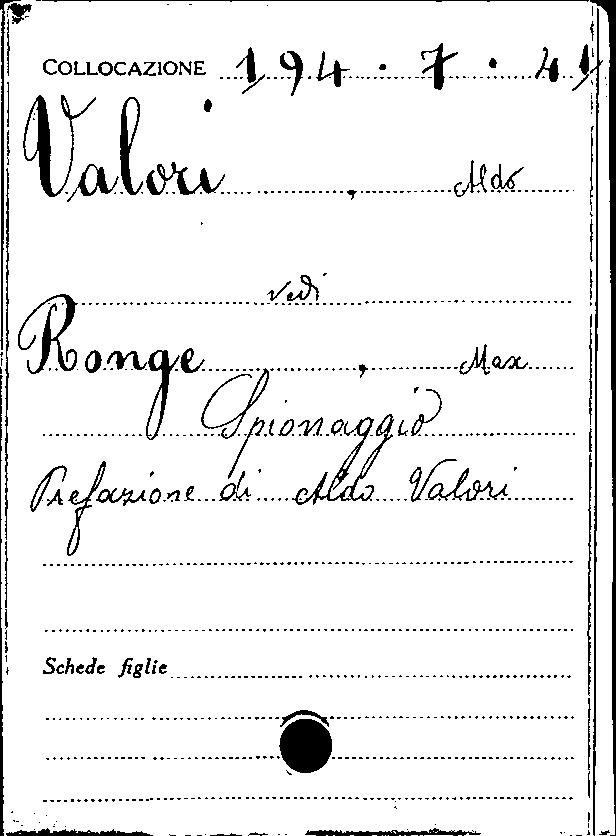 COLLOCAZIONE 194 · 7 · 41
Valori, Aldo
vedi
Ronge, Max
Spionaggio
Prefazione di Aldo Valori
Schede figlie